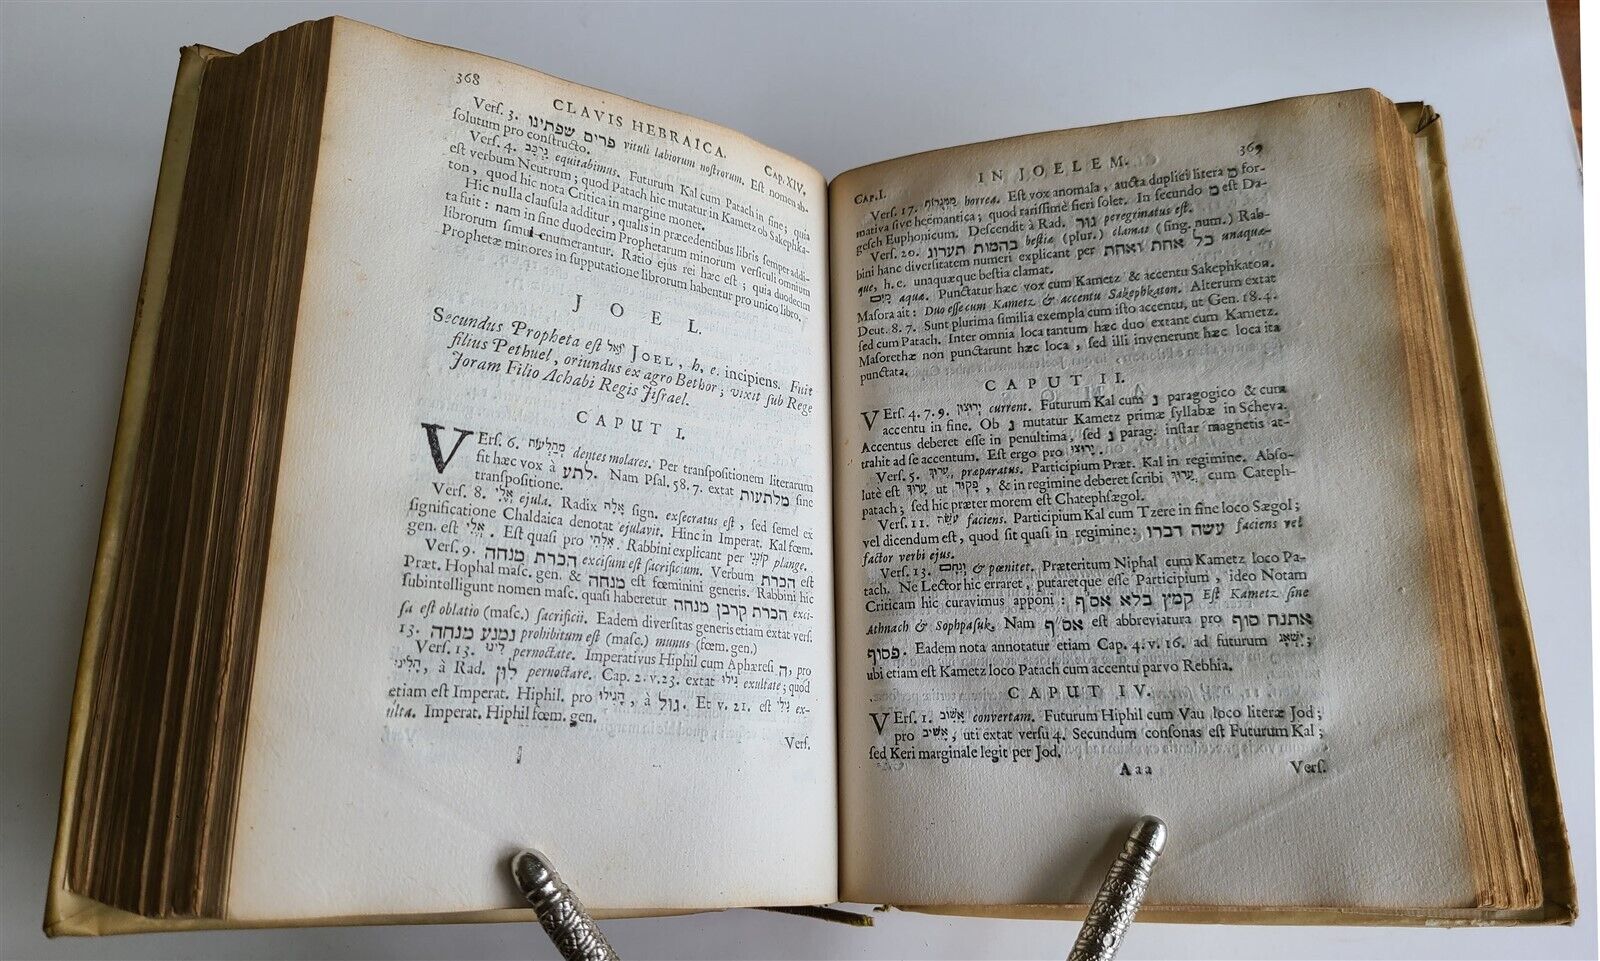 368
CLAVIS HEBRAICA.
Cap. XIV.
Verſ. 3. פרים שפתינו vituli labiorum noſtrorum. Eſt nomen ab-
ſolutum pro conſtructo.
Verſ. 4. נִרְכָּב equitabimus. Futurum Kal cum Patach in fine; quia
eſt verbum Neutrum; quod Patach hic mutatur in Kametz ob Sakephka-
ton, quod hic nota Critica in margine monet.
Hic nulla clauſula additur, qualis in præcedentibus libris ſemper addi-
ta fuit: nam in fine duodecim Prophetarum minorum verſiculi omnium
librorum ſimul enumerantur. Ratio ejus rei hæc eſt; quia duodecim
Prophetæ minores in ſupputatione librorum habentur pro unico libro.
JOEL.
Secundus Propheta eſt יואל JOEL, h. e. incipiens. Fuit
filius Pethuel, oriundus ex agro Bethor; vixit ſub Rege
Joram Filio Achabi Regis Jiſrael.
CAPUT I.
VErſ. 6. מְתַלְּעוֹת dentes molares. Per transpoſitionem literarum
fit hæc vox à לתע. Nam Pſal. 58. 7. extat מלתעות ſine
transpoſitione.
Verſ. 8. אֱלִי ejula. Radix אלה ſign. exſecratus eſt, ſed ſemel ex
ſignificatione Chaldaica denotat ejulavit. Hinc in Imperat. Kal fœm.
gen. eſt אֱלִי. Eſt quaſi pro אלהי. Rabbini explicant per קונני plange.
Verſ. 9. הכרת מנחה exciſum eſt ſacrificium. Verbum הכרת eſt
Præt. Hophal maſc. gen. & מנחה eſt fœminini generis. Rabbini hic
ſubintolligunt nomen maſc. quaſi haberetur הכרת קרבן מנחה exci-
ſa eſt oblatio (maſc.) ſacrificii. Eadem diverſitas generis etiam extat verſ.
13. נמנע מנחה prohibitum eſt (maſc.) munus (fœm. gen.)
Verſ. 13. לינו pernoctate. Imperativus Hiphil cum Aphæreſi ה, pro
הלינו, à Rad. לון pernoctare. Cap. 2. v. 23. extat גילו exultate; quod
etiam eſt Imperat. Hiphil. pro הגילו, à גול. Et v. 21. eſt גילי ex-
ulta. Imperat. Hiphil fœm. gen.
Verſ.
Cap. I.
IN JOELEM.
369
Verſ. 17. ממגרות horrea. Eſt vox anomala, aucta duplici litera מ for-
mativa ſive heemantica; quod rariſſimè fieri ſolet. In ſecundo מ eſt Da-
geſch Euphonicum. Deſcendit à Rad. גור peregrinatus eſt.
Verſ. 20. בהמות תערוג beſtiæ (plur.) clamat (ſing. num.) Rab-
bini hanc diverſitatem numeri explicant per כל אחת ואחת unaquæ-
que, h. e. unaquæque beſtia clamat.
מָיִם aquæ. Punctatur hæc vox cum Kametz & accentu Sakephkaton.
Maſora ait: Duo eſſe cum Kametz & accentu Sakephkaton. Alterum extat
Deut. 8. 7. Sunt plurima ſimilia exempla cum iſto accentu, ut Gen. 18. 4.
ſed cum Patach. Inter omnia loca tantum hæc duo extant cum Kametz.
Maſorethæ non punctarunt hæc loca, ſed illi invenerunt hæc loca ita
punctata.
CAPUT II.
VErſ. 4. 7. 9. יְרוּצוּן current. Futurum Kal cum נ paragogico & cum
accentu in fine. Ob נ mutatur Kametz primæ ſyllabæ in Scheva.
Accentus deberet eſſe in penultima, ſed נ parag. inſtar magnetis at-
trahit ad ſe accentum. Eſt ergo pro ירוצו.
Verſ. 5. עֱרוּךְ præparatus. Participium Præt. Kal in regimine. Abſo-
lutè eſt ערוך ut פקוד, & in regimine deberet ſcribi ערוך cum Cateph-
patach; ſed hic præter morem eſt Chatephſægol.
Verſ. 11. עֹשֵׂה faciens. Participium Kal cum Tzere in fine loco Sægol;
vel dicendum eſt, quod ſit quaſi in regimine: עשה דברו faciens vel
factor verbi ejus.
Verſ. 13. ונחם & pœnitet. Præteritum Niphal cum Kametz loco Pa-
tach. Ne Lector hic erraret, putaretque eſſe Participium, ideo Notam
Criticam hic curavimus apponi: קמץ בלא אס״ף Eſt Kametz ſine
Athnach & Sophpaſuk. Nam אס״ף eſt abbreviatura pro אתנח סוף
פסוף. Eadem nota annotatur etiam Cap. 4. v. 16. ad futurum ישאג;
ubi etiam eſt Kametz loco Patach cum accentu parvo Rebhia.
CAPUT IV.
VErſ. 1. אשוב convertam. Futurum Hiphil cum Vau loco literæ Jod;
pro אשיב, uti extat verſu 4. Secundum conſonas eſt Futurum Kal;
ſed Keri marginale legit per Jod.
Aaa
Verſ.